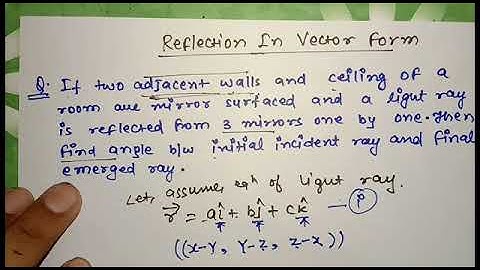 Reflection In Vector form
Q: If two adjacent walls and ceiling of a
room are mirror surfaced and a light ray
is reflected from 3 mirrors one by one. then
find angle b/w initial incident ray and final
emerged ray.
Let, assumes eqⁿ of light ray.
r⃗ = aî + bĵ + ck̂ — ⓘ
((x-y, y-z, z-x))